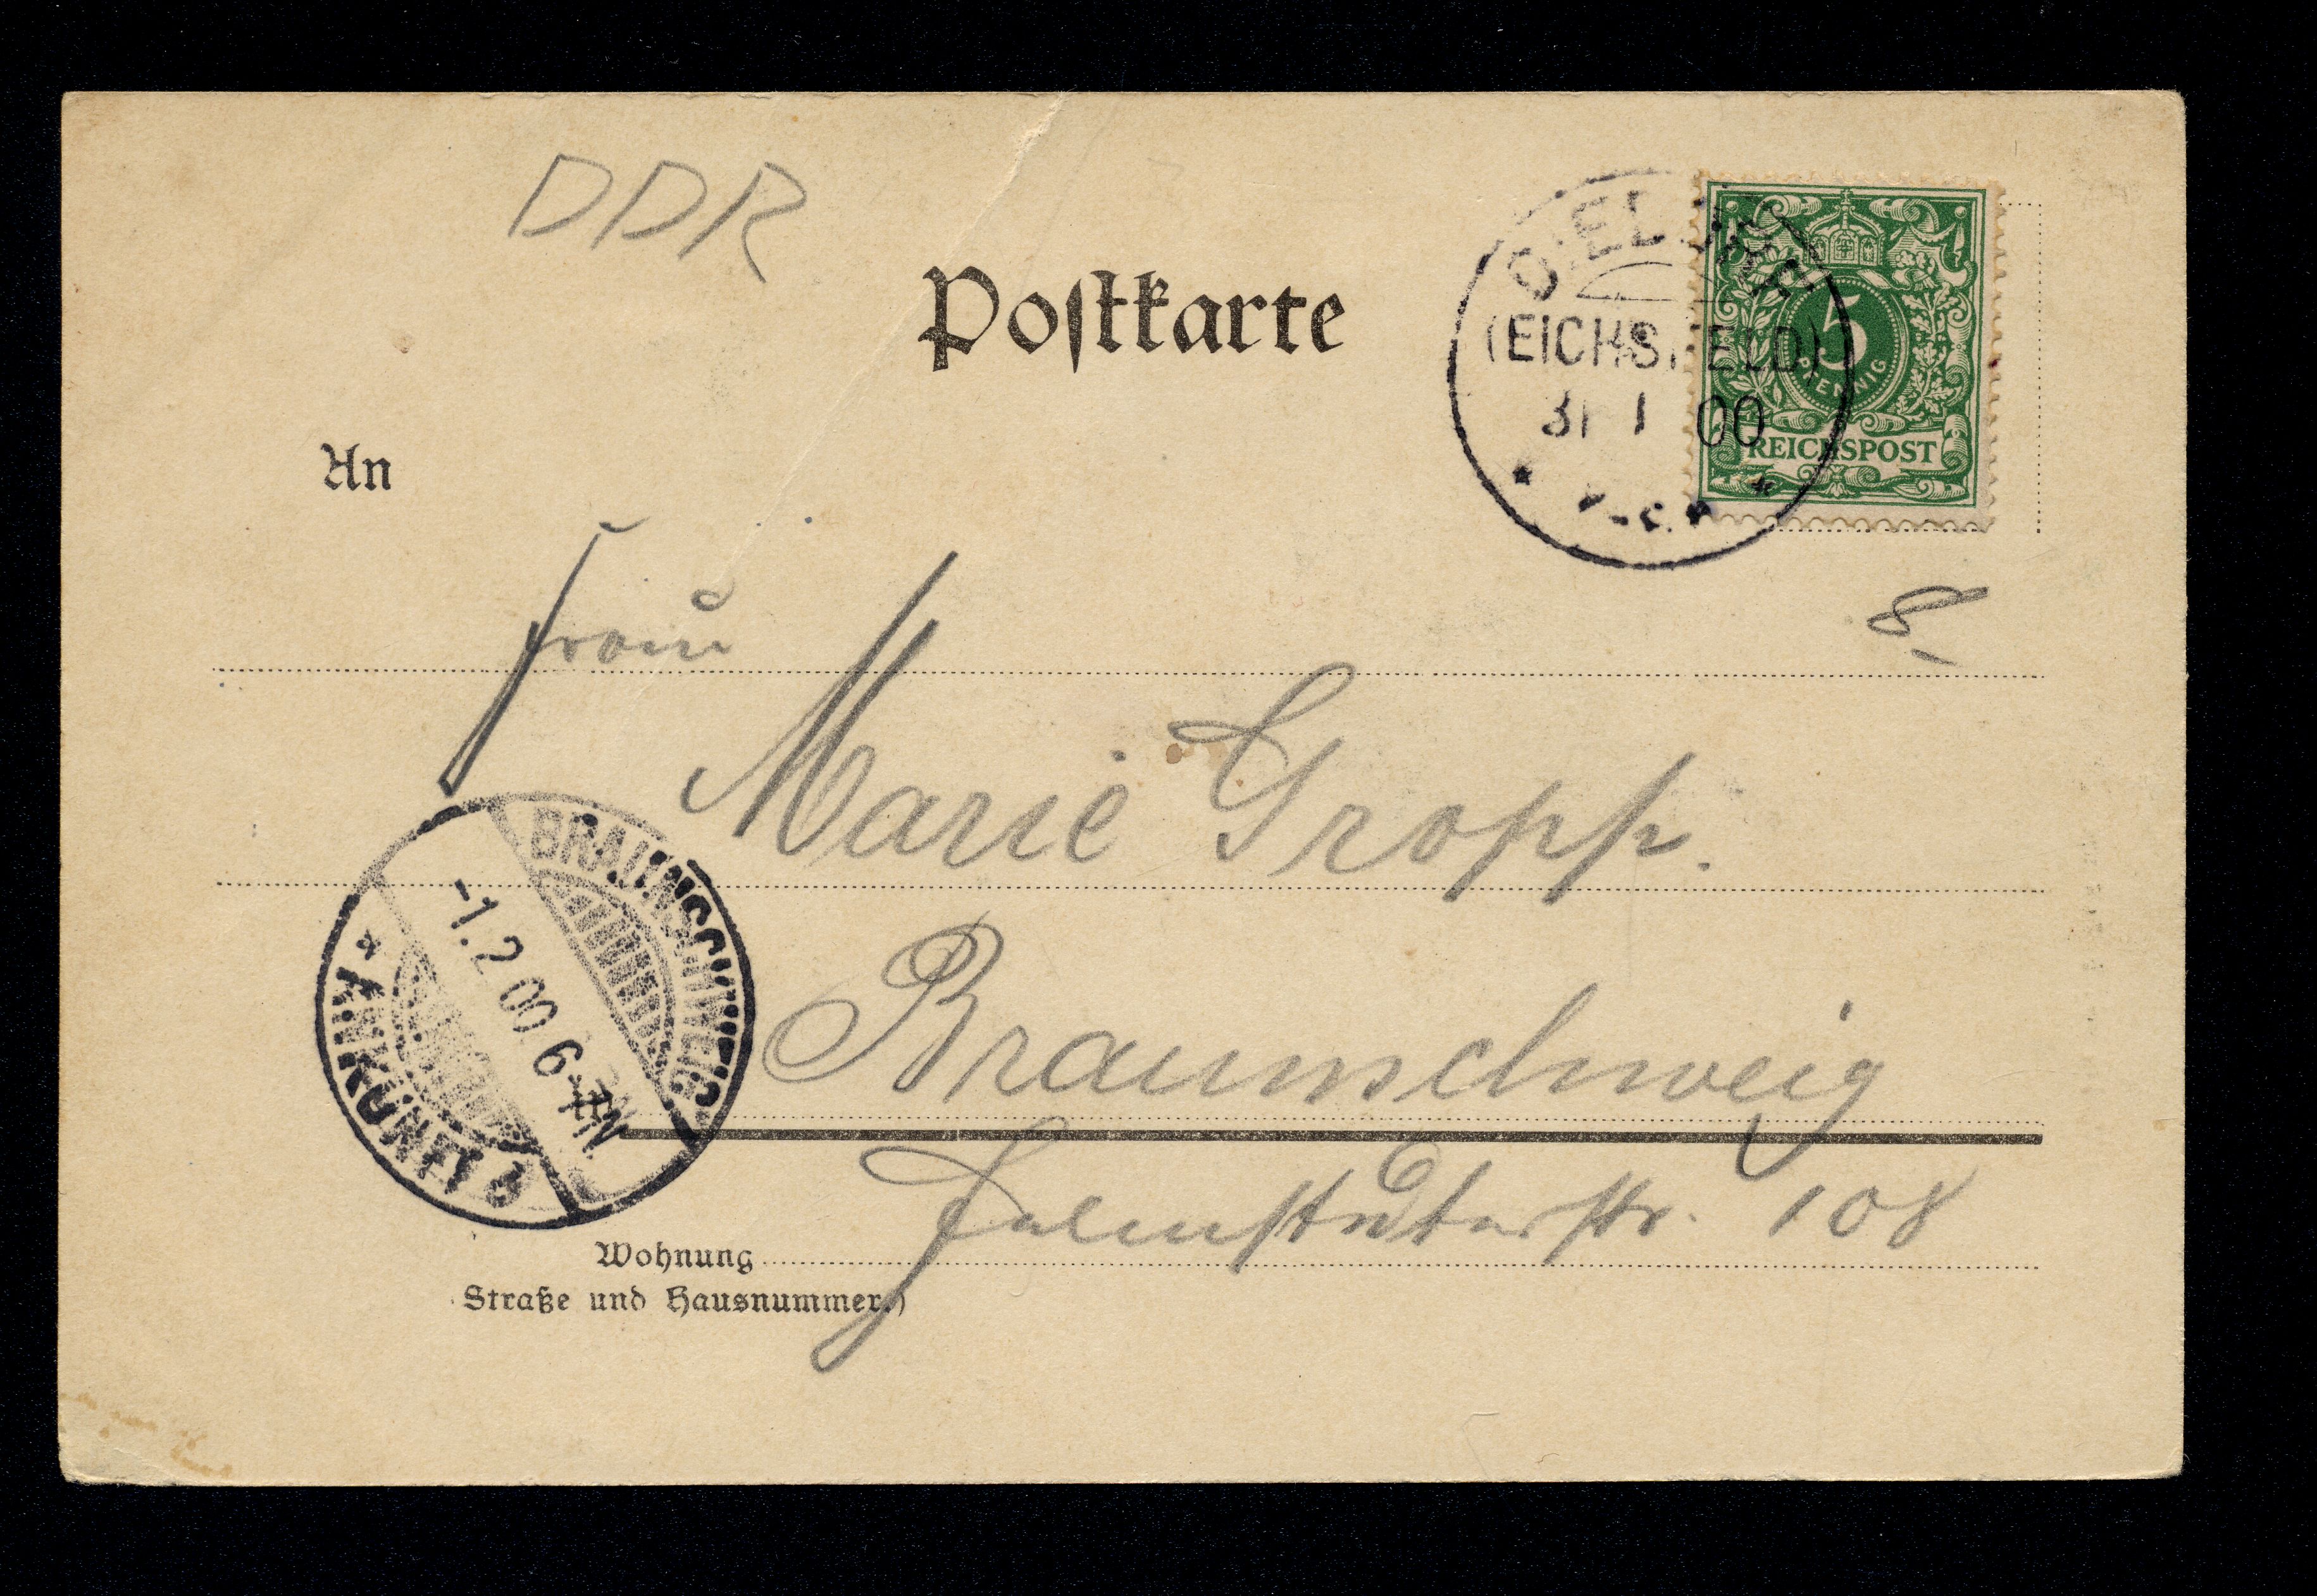 DDR
Postkarte
(EICHSFELD)
31 1 00
5
PFENNIG
REICHSPOST
An
8
Frau
Marie Gropp.
BRAUNSCHWEIG
-1.2.00. 6-7N
* ANKUNFT
Braunschweig
Helmstedterstr. 108
Wohnung
(Straße und Hausnummer)